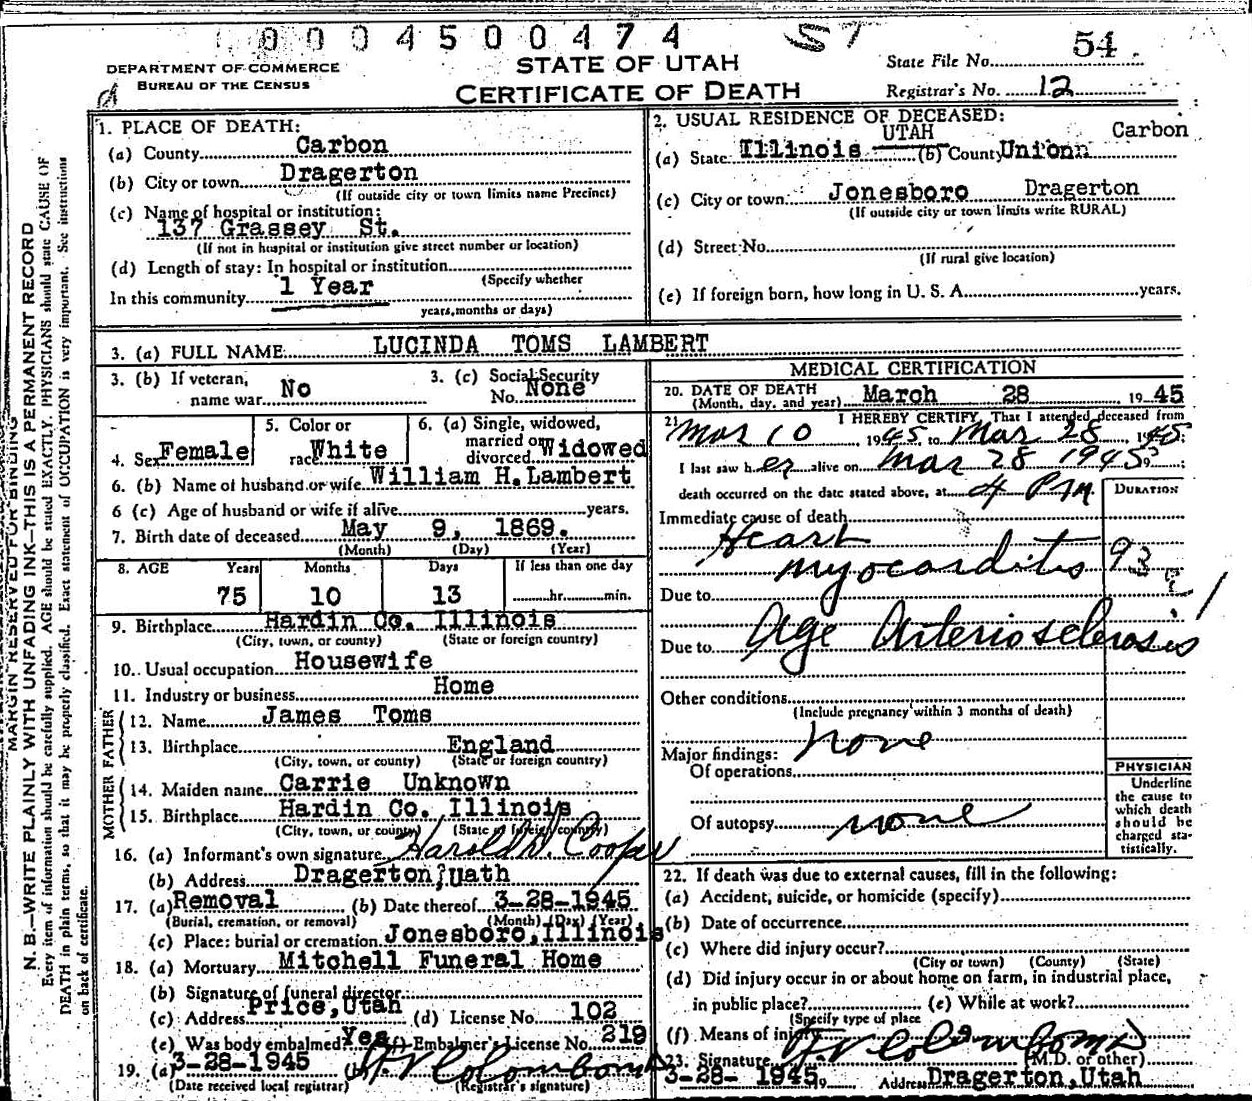 0004500474 57 54
DEPARTMENT OF COMMERCE
BUREAU OF THE CENSUS
STATE OF UTAH
CERTIFICATE OF DEATH
State File No.
Registrar's No. 12
MARGIN RESERVED FOR BINDING
N. B.—WRITE PLAINLY WITH UNFADING INK—THIS IS A PERMANENT RECORD
Every item of information should be carefully supplied. AGE should be stated EXACTLY. PHYSICIANS should state CAUSE OF
DEATH in plain terms, so that it may be properly classified. Exact statement of OCCUPATION is very important. See instructions
on back of certificate.
1. PLACE OF DEATH:
(a) County Carbon
(b) City or town Dragerton
(If outside city or town limits name Precinct)
(c) Name of hospital or institution:
137 Grassey St.
(If not in hospital or institution give street number or location)
(d) Length of stay: In hospital or institution
(Specify whether
In this community 1 Year
years, months or days)
2. USUAL RESIDENCE OF DECEASED:
UTAH Carbon
(a) State Illinois (b) County Unionn
(c) City or town Jonesboro Dragerton
(If outside city or town limits write RURAL)
(d) Street No.
(If rural give location)
(e) If foreign born, how long in U. S. A. years.
3. (a) FULL NAME LUCINDA TOMS LAMBERT
3. (b) If veteran,
name war No
3. (c) Social Security
No. None
4. Sex Female
5. Color or
race White
6. (a) Single, widowed,
married or
divorced Widowed
6. (b) Name of husband or wife William H. Lambert
6 (c) Age of husband or wife if alive years.
7. Birth date of deceased May 9, 1869.
(Month) (Day) (Year)
8. AGE Years Months Days If less than one day
75 10 13 hr. min.
9. Birthplace Hardin Co. Illinois
(City, town, or county) (State or foreign country)
10. Usual occupation Housewife
11. Industry or business Home
FATHER
12. Name James Toms
13. Birthplace England
(City, town, or county) (State or foreign country)
MOTHER
14. Maiden name Carrie Unknown
15. Birthplace Hardin Co. Illinois
(City, town, or county) (State or foreign country)
16. (a) Informant's own signature Harold W. Cooper
(b) Address Dragerton, Uath
17. (a) Removal (b) Date thereof 3-28-1945
(Burial, cremation, or removal) (Month) (Day) (Year)
(c) Place: burial or cremation Jonesboro, Illinois
18. (a) Mortuary Mitchell Funeral Home
(b) Signature of funeral director
(c) Address Price, Utah (d) License No. 102
(e) Was body embalmed? Yes (f) Embalmer's License No. 219
19. (a) 3-28-1945 (b) F. V. Colombo MD
(Date received local registrar) (Registrar's signature)
MEDICAL CERTIFICATION
20. DATE OF DEATH
(Month, day, and year) March 28 1945
21. I HEREBY CERTIFY, That I attended deceased from
Mar 10, 1945 to Mar 28 1945
I last saw her alive on Mar 28 1945;
death occurred on the date stated above, at 4 P.M.
DURATION
Immediate cause of death
Heart
myocarditis 93
Due to
Due to Age Arteriosclerosis
Other conditions
(Include pregnancy within 3 months of death)
none
Major findings:
Of operations
Of autopsy none
PHYSICIAN
Underline
the cause to
which death
should be
charged sta-
tistically.
22. If death was due to external causes, fill in the following:
(a) Accident, suicide, or homicide (specify)
(b) Date of occurrence
(c) Where did injury occur?
(City or town) (County) (State)
(d) Did injury occur in or about home on farm, in industrial place,
in public place? (e) While at work?
(Specify type of place
(f) Means of injury
23. Signature F. V. Colombo MD
(M.D. or other)
3-28- 1945, Address Dragerton, Utah